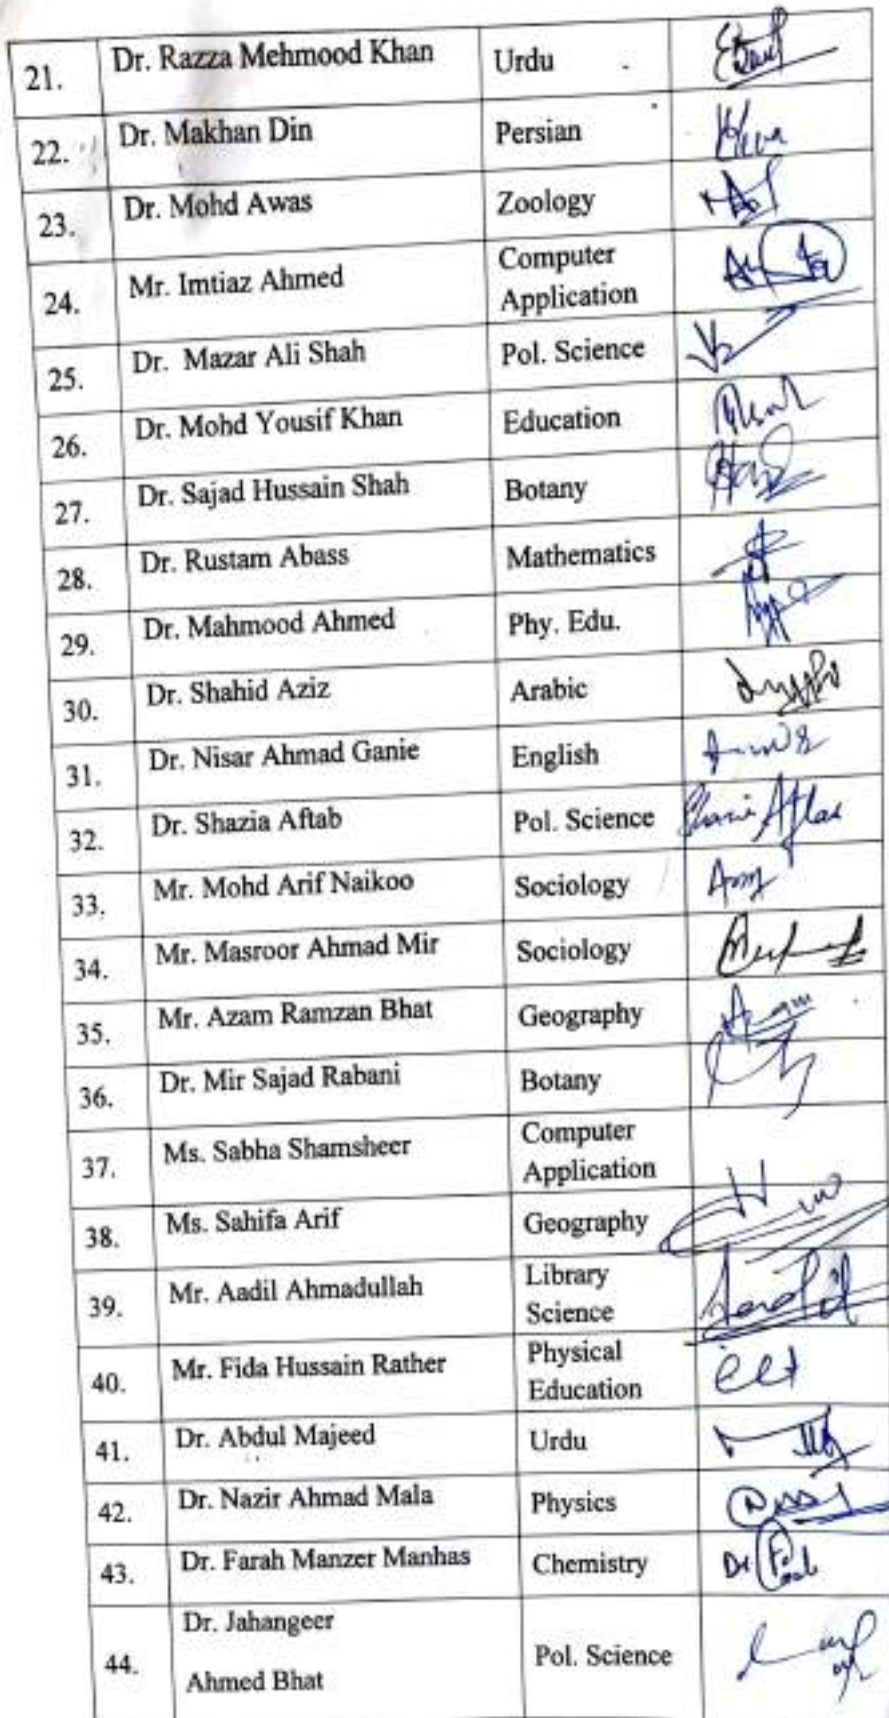 21. Dr. Razza Mehmood Khan Urdu
22. Dr. Makhan Din Persian
23. Dr. Mohd Awas Zoology
24. Mr. Imtiaz Ahmed Computer
Application
25. Dr. Mazar Ali Shah Pol. Science
26. Dr. Mohd Yousif Khan Education
27. Dr. Sajad Hussain Shah Botany
28. Dr. Rustam Abass Mathematics
29. Dr. Mahmood Ahmed Phy. Edu.
30. Dr. Shahid Aziz Arabic
31. Dr. Nisar Ahmad Ganie English
32. Dr. Shazia Aftab Pol. Science
33. Mr. Mohd Arif Naikoo Sociology
34. Mr. Masroor Ahmad Mir Sociology
35. Mr. Azam Ramzan Bhat Geography
36. Dr. Mir Sajad Rabani Botany
37. Ms. Sabha Shamsheer Computer
Application
38. Ms. Sahifa Arif Geography
39. Mr. Aadil Ahmadullah Library
Science
40. Mr. Fida Hussain Rather Physical
Education
41. Dr. Abdul Majeed Urdu
42. Dr. Nazir Ahmad Mala Physics
43. Dr. Farah Manzer Manhas Chemistry
44. Dr. Jahangeer
Ahmed Bhat Pol. Science